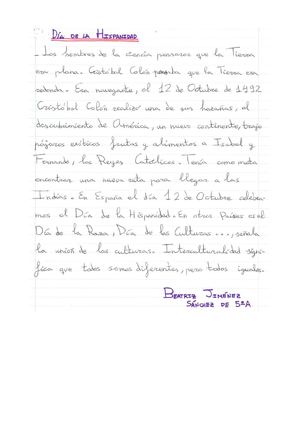 Día DE LA HISPANIDAD
- Los hombres de la ciencia pensaron que la Tierra
era plana. Cristóbal Colón pensaba que la Tierra era
redonda. Era navegante, el 12 de Octubre de 1492
Cristóbal Colón realizó una de sus hazañas, el
descubrimiento de América, un nuevo continente, trajo
pájaros exóticos frutas y alimentos a Isabel y
Fernando, los Reyes Católicos. Tenía como meta
encontrar una nueva ruta para llegar a las
Indias. En España el día 12 de Octubre celebra-
mos el Día de la Hispanidad. En otros Países es el
Día de la Raza, Día de las Culturas ..., señala
la unión de las culturas. Interculturalidad signi-
fica que todos somos diferentes, pero todos iguales.
BEATRIZ JIMÉNEZ
SÁNCHEZ DE 5ºA